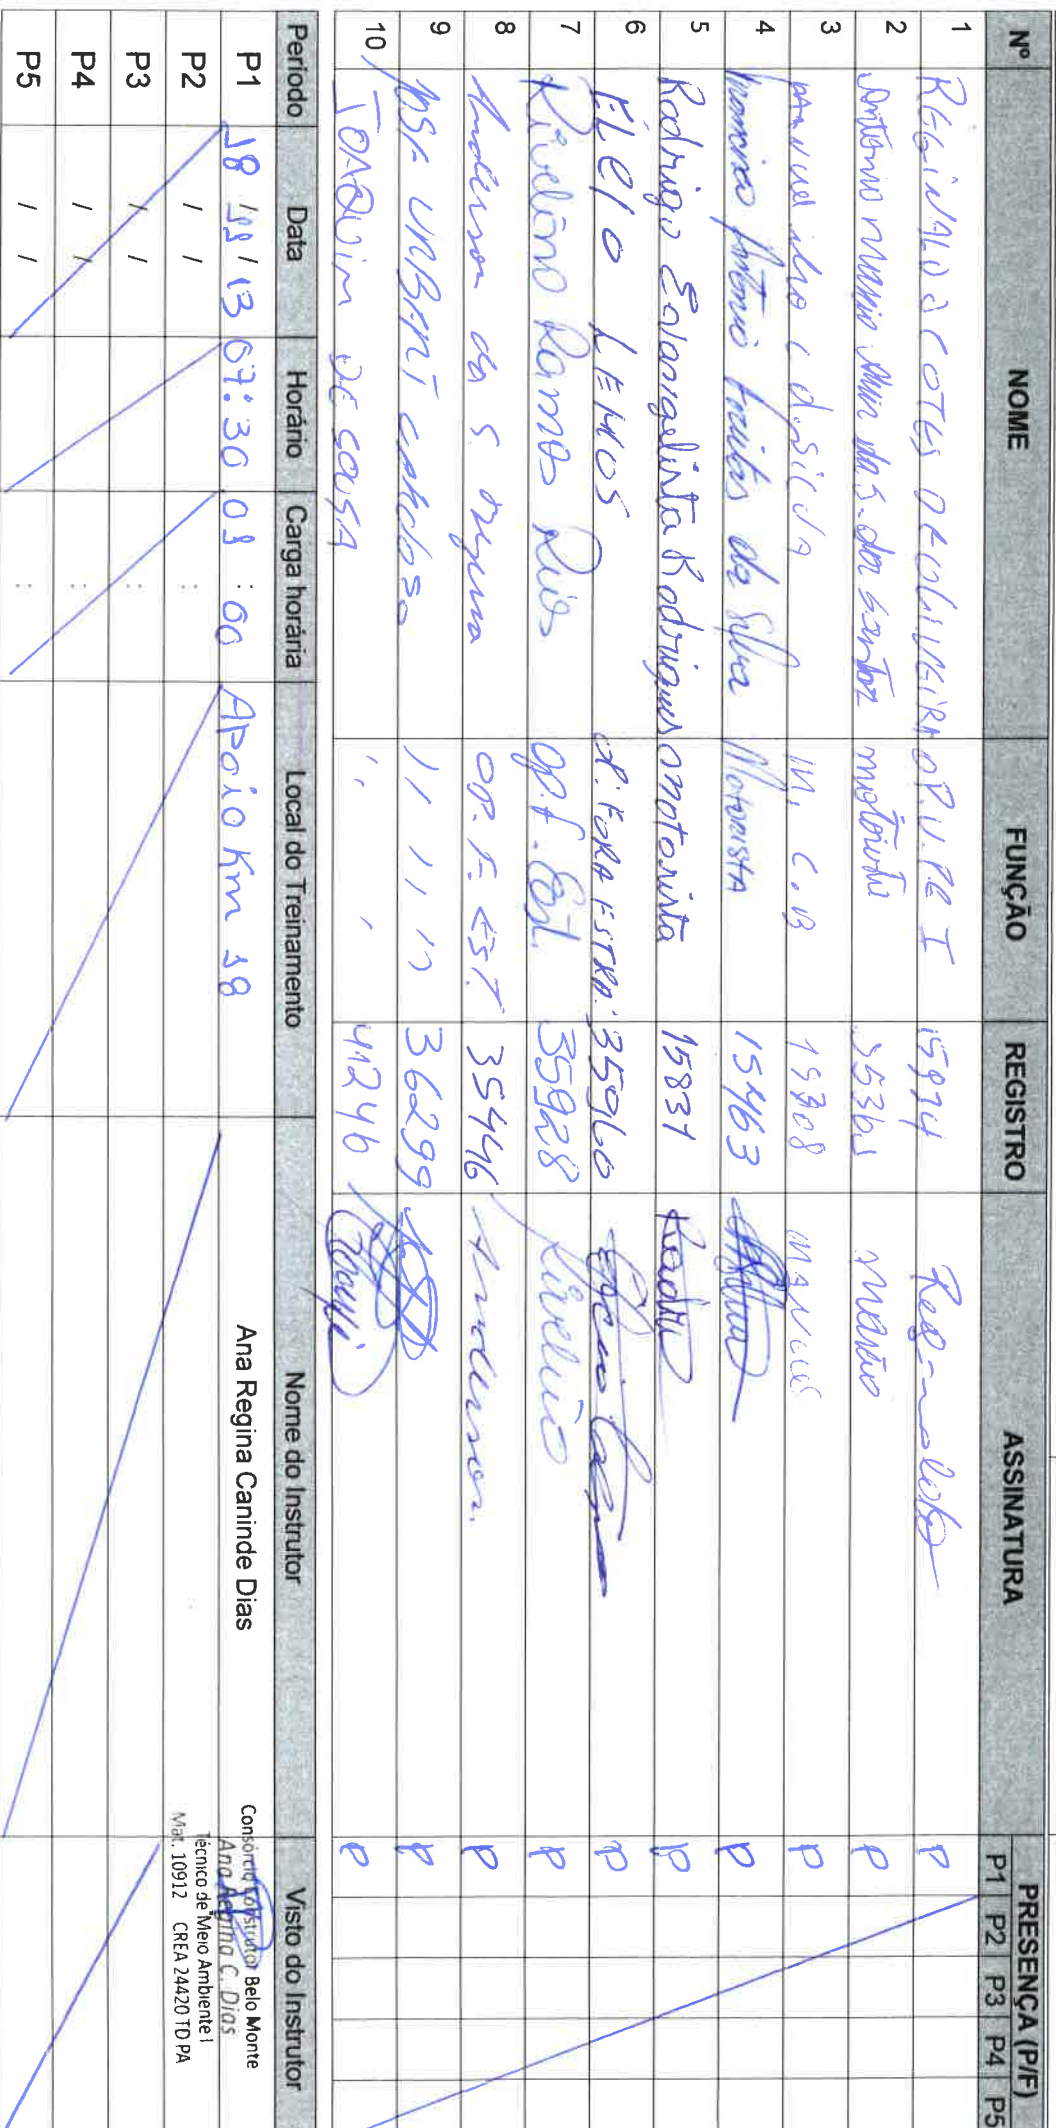 Nº NOME FUNÇÃO REGISTRO ASSINATURA PRESENÇA (P/F)
P1 P2 P3 P4 P5
1 REGINALDO COTES DE OLIVEIRA OP. V. PE I 15974 P
2 Antonio da S. dos Santos motorista Mario P
3 Manuel m. C. B 19308 Manuel P
4 Francisco Antonio Freitas da Silva Motorista 15463 P
5 Rodrigo Evangelista Rodrigues motorista 15831 Rodri P
6 ÉLCIO LEMOS OP. FORA ESTRA. 35960 P
7 Rivelino Ramos Rios OP. f. Est. 35928 Rivelino P
8 Anderson da S. OP. F. EST. 35446 Anderson. P
9 JOSE URBANI CARDOSO 11 11 11 36299 P
10 JOAQUIM DE SOUSA 41246 P
Período Data Horário Carga horária Local do Treinamento Nome do Instrutor Visto do Instrutor
P1 18 / 11 / 13 07:30 01 : 00 APoio Km 18 Ana Regina Caninde Dias
Consórcio Construtor Belo Monte
Ana Regina C. Dias
Técnico de Meio Ambiente I
Mat. 10912 CREA 24420 TD PA
P2 / / :
P3 / / :
P4 / / :
P5 / / :